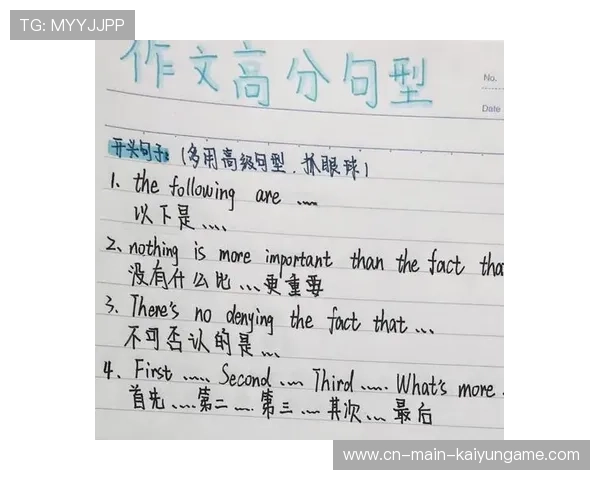 TG: MYYJJPP
作文高分句型
No.
Date
开头句子:(多用高级句型.抓眼球)
1. the following are ....
以下是....
2. nothing is more important than the fact tha
没有什么比...更重要
3. There's no denying the fact that ...
不可否认的是...
4. First .... Second .... Third .... What's more .
首先....第二....第三....其次...最后
www.cn-main-kaiyungame.com